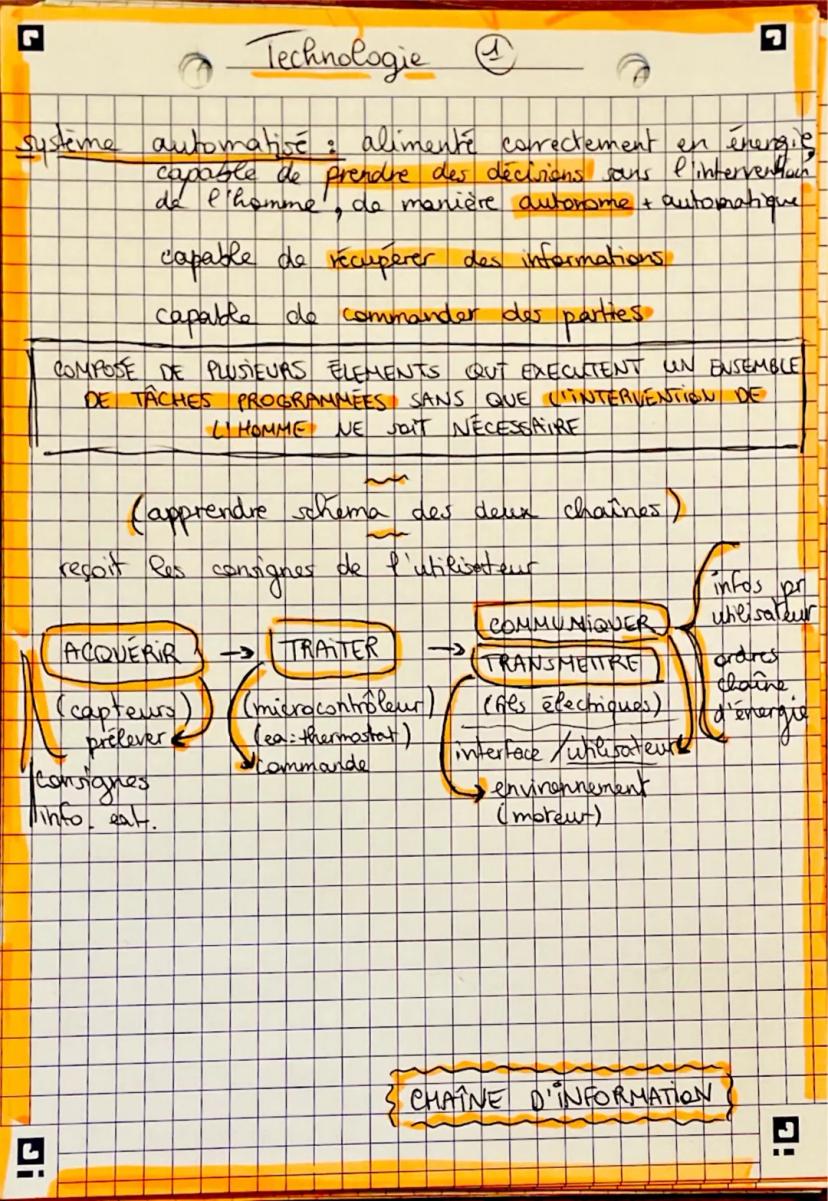 Technologie 1
système automatisé : alimenté correctement en énergie,
capable de prendre des décisions sans l'intervention
de l'homme, de manière autonome + automatique
capable de récupérer des informations
capable de commander des parties
COMPOSÉ DE PLUSIEURS ÉLEMENTS QUI EXECUTENT UN ENSEMBLE
DE TÂCHES PROGRAMMÉES SANS QUE L'INTERVENTION DE
L'HOMME NE SOIT NÉCESSAIRE
(apprendre schema des deux chaînes)
reçoit les consignes de l'utilisateur
ACQUÉRIR → TRAITER → COMMUNIQUER
TRANSMETTRE
infos pr
utilisateur
ordres
chaîne
d'énergie
(capteurs)
prélever
consignes
info. ext.
(microcontrôleur)
(ex: thermostat)
commande
(fils électriques)
interface / utilisateur
environnement
(moteur)
CHAÎNE D'INFORMATION